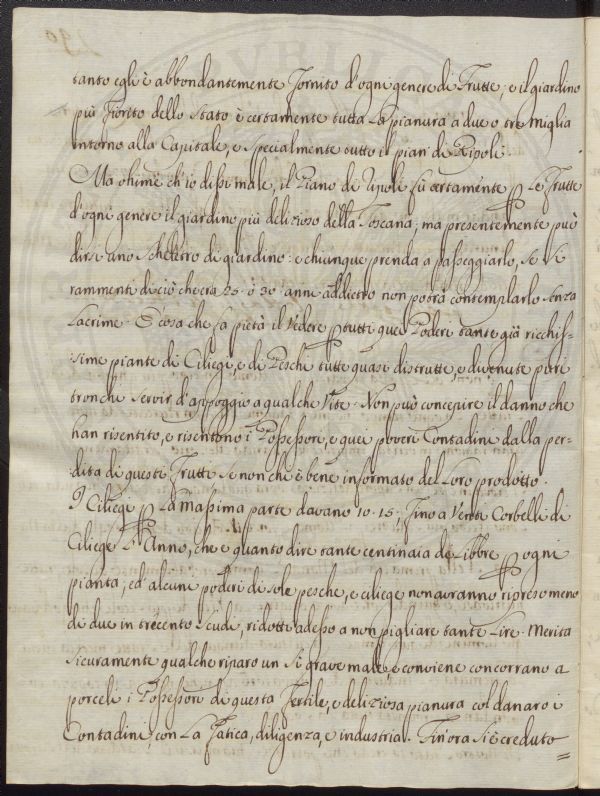 tanto egli è abbondantemente fornito d'ogni genere di Frutte; e il giardino
più fiorito dello Stato è certamente tutta la pianura a due o tre miglia
intorno alla Capitale, e specialmente tutto il pian di Ripoli.
Ma ohime ch'io dissi male, il Piano di Ripoli fù certamente p Le Frutte
d'ogni genere il giardino più delizioso della Toscana, ma presentemente può
dirsi uno Scheletro di giardino: e chiunque prenda a passeggiarlo, se si
rammenti di ciò che era 25. ò 30. anni addietro non potrà contemplarlo senza
Lacrime. È cosa che fa pietà il vedere p tutti quei Poderi tante già ricchis=
:sime piante di Ciliegi, e di Peschi tutte quasi distrutte, e divenute puri
tronchi servir d'appoggio a qualche Vite. Non può concepire il danno che
han risentito, e risentono i Possessori, e quei poveri Contadini dalla per=
:dita di questi Frutti se non chi è bene informato del Loro prodotto.
I Ciliegi p La massima parte davano 10. 15., fino a Venti Corbelli di
Ciliege L'Anno, che e quanto dire tante centinaia di Libbre p ogni
pianta; ed alcuni poderi di sole pesche, e ciliege non avranno ripreso meno
di due in trecento scudi, ridotti adesso a non pigliare tante Lire. Merita
sicuramente qualche riparo un si grave male, e conviene concorrano a
porceli i Possessori di questa fertile, e deliziosa pianura col danaro i
Contadini, con La Fatica, diligenza, e industria. Fin'ora si è creduto